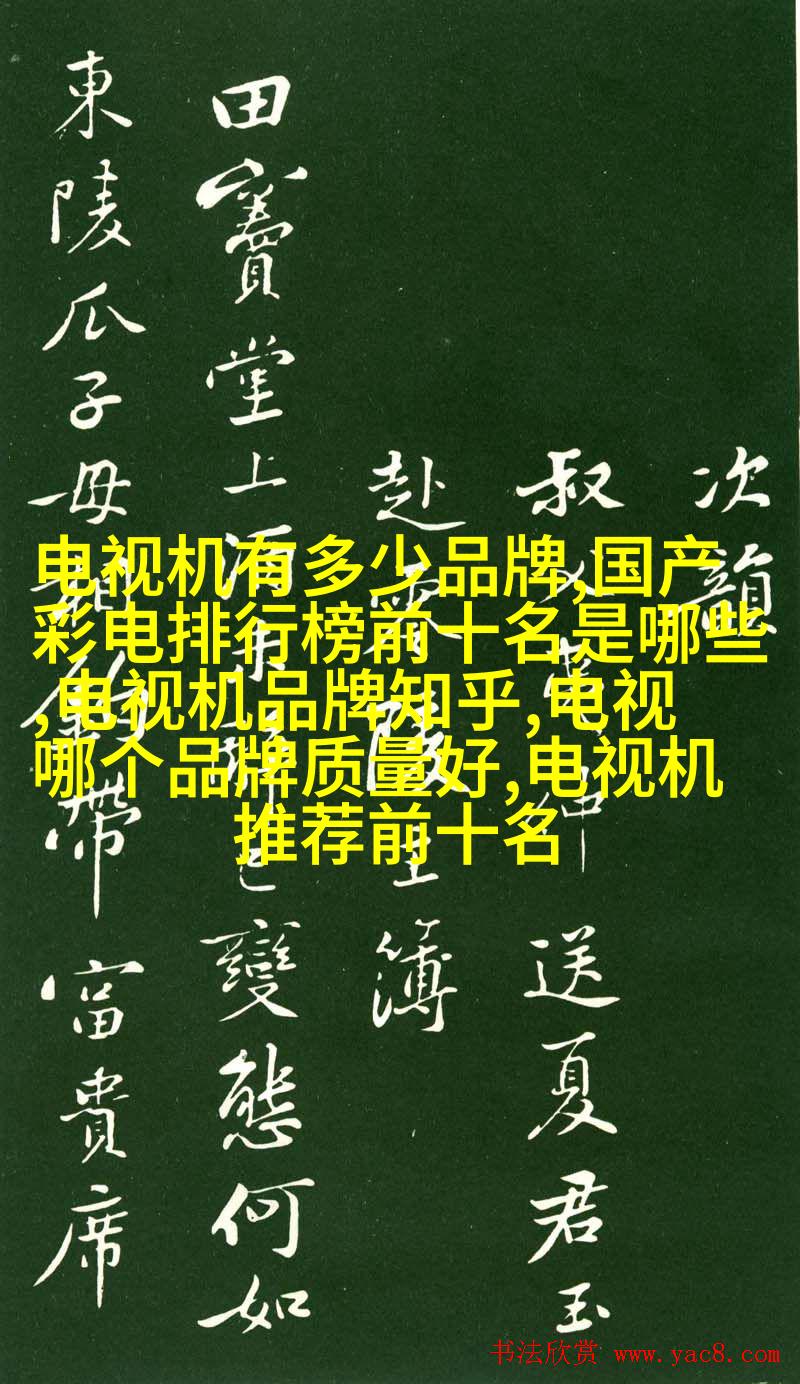 电视机有多少品牌,国产
彩电排行榜前十名是哪些
,电视机品牌知乎,电视
哪个品牌质量好,电视机
推荐前十名
次韻
叔父夷仲送夏君玉
赴零陵主簿
田竇堂上酒未醒已變態何如
東陵瓜子母相鉤帶富貴席
书法欣赏 www.yac8.com